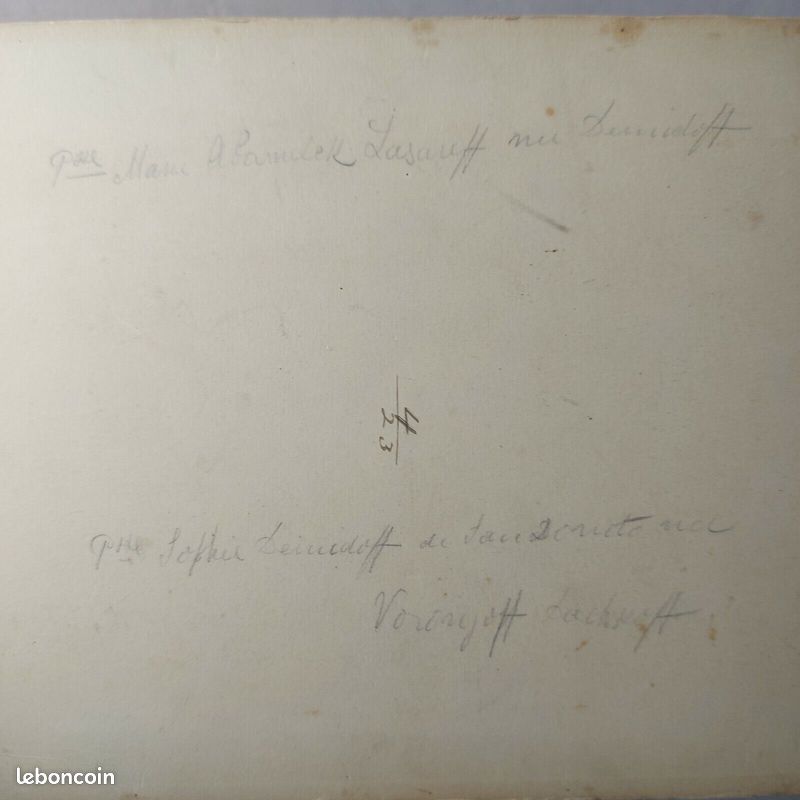 Psse Marie Abamelek Lazareff née Demidoff
4
23
Psse Sophie Demidoff de San Donato née
Dachkoff
leboncoin